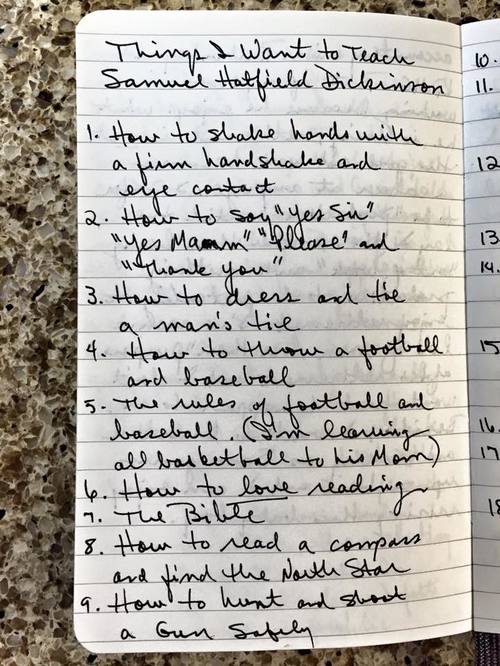 Things I Want to Teach
Samuel Hatfield Dickinson
1. How to shake hands with
a firm handshake and
eye contact
2. How to say "Yes Sir"
"Yes Mamm" "Please" and
"Thank you"
3. How to dress and tie
a man's tie
4. How to throw a football
and baseball
5. The rules of football and
baseball. (I'm leaving
all basketball to his Mom)
6. How to love reading
7. The Bible
8. How to read a compass
and find the North Star
9. How to hunt and shoot
a Gun Safely
10.
11.
12
13
14.
15
16.
17
18